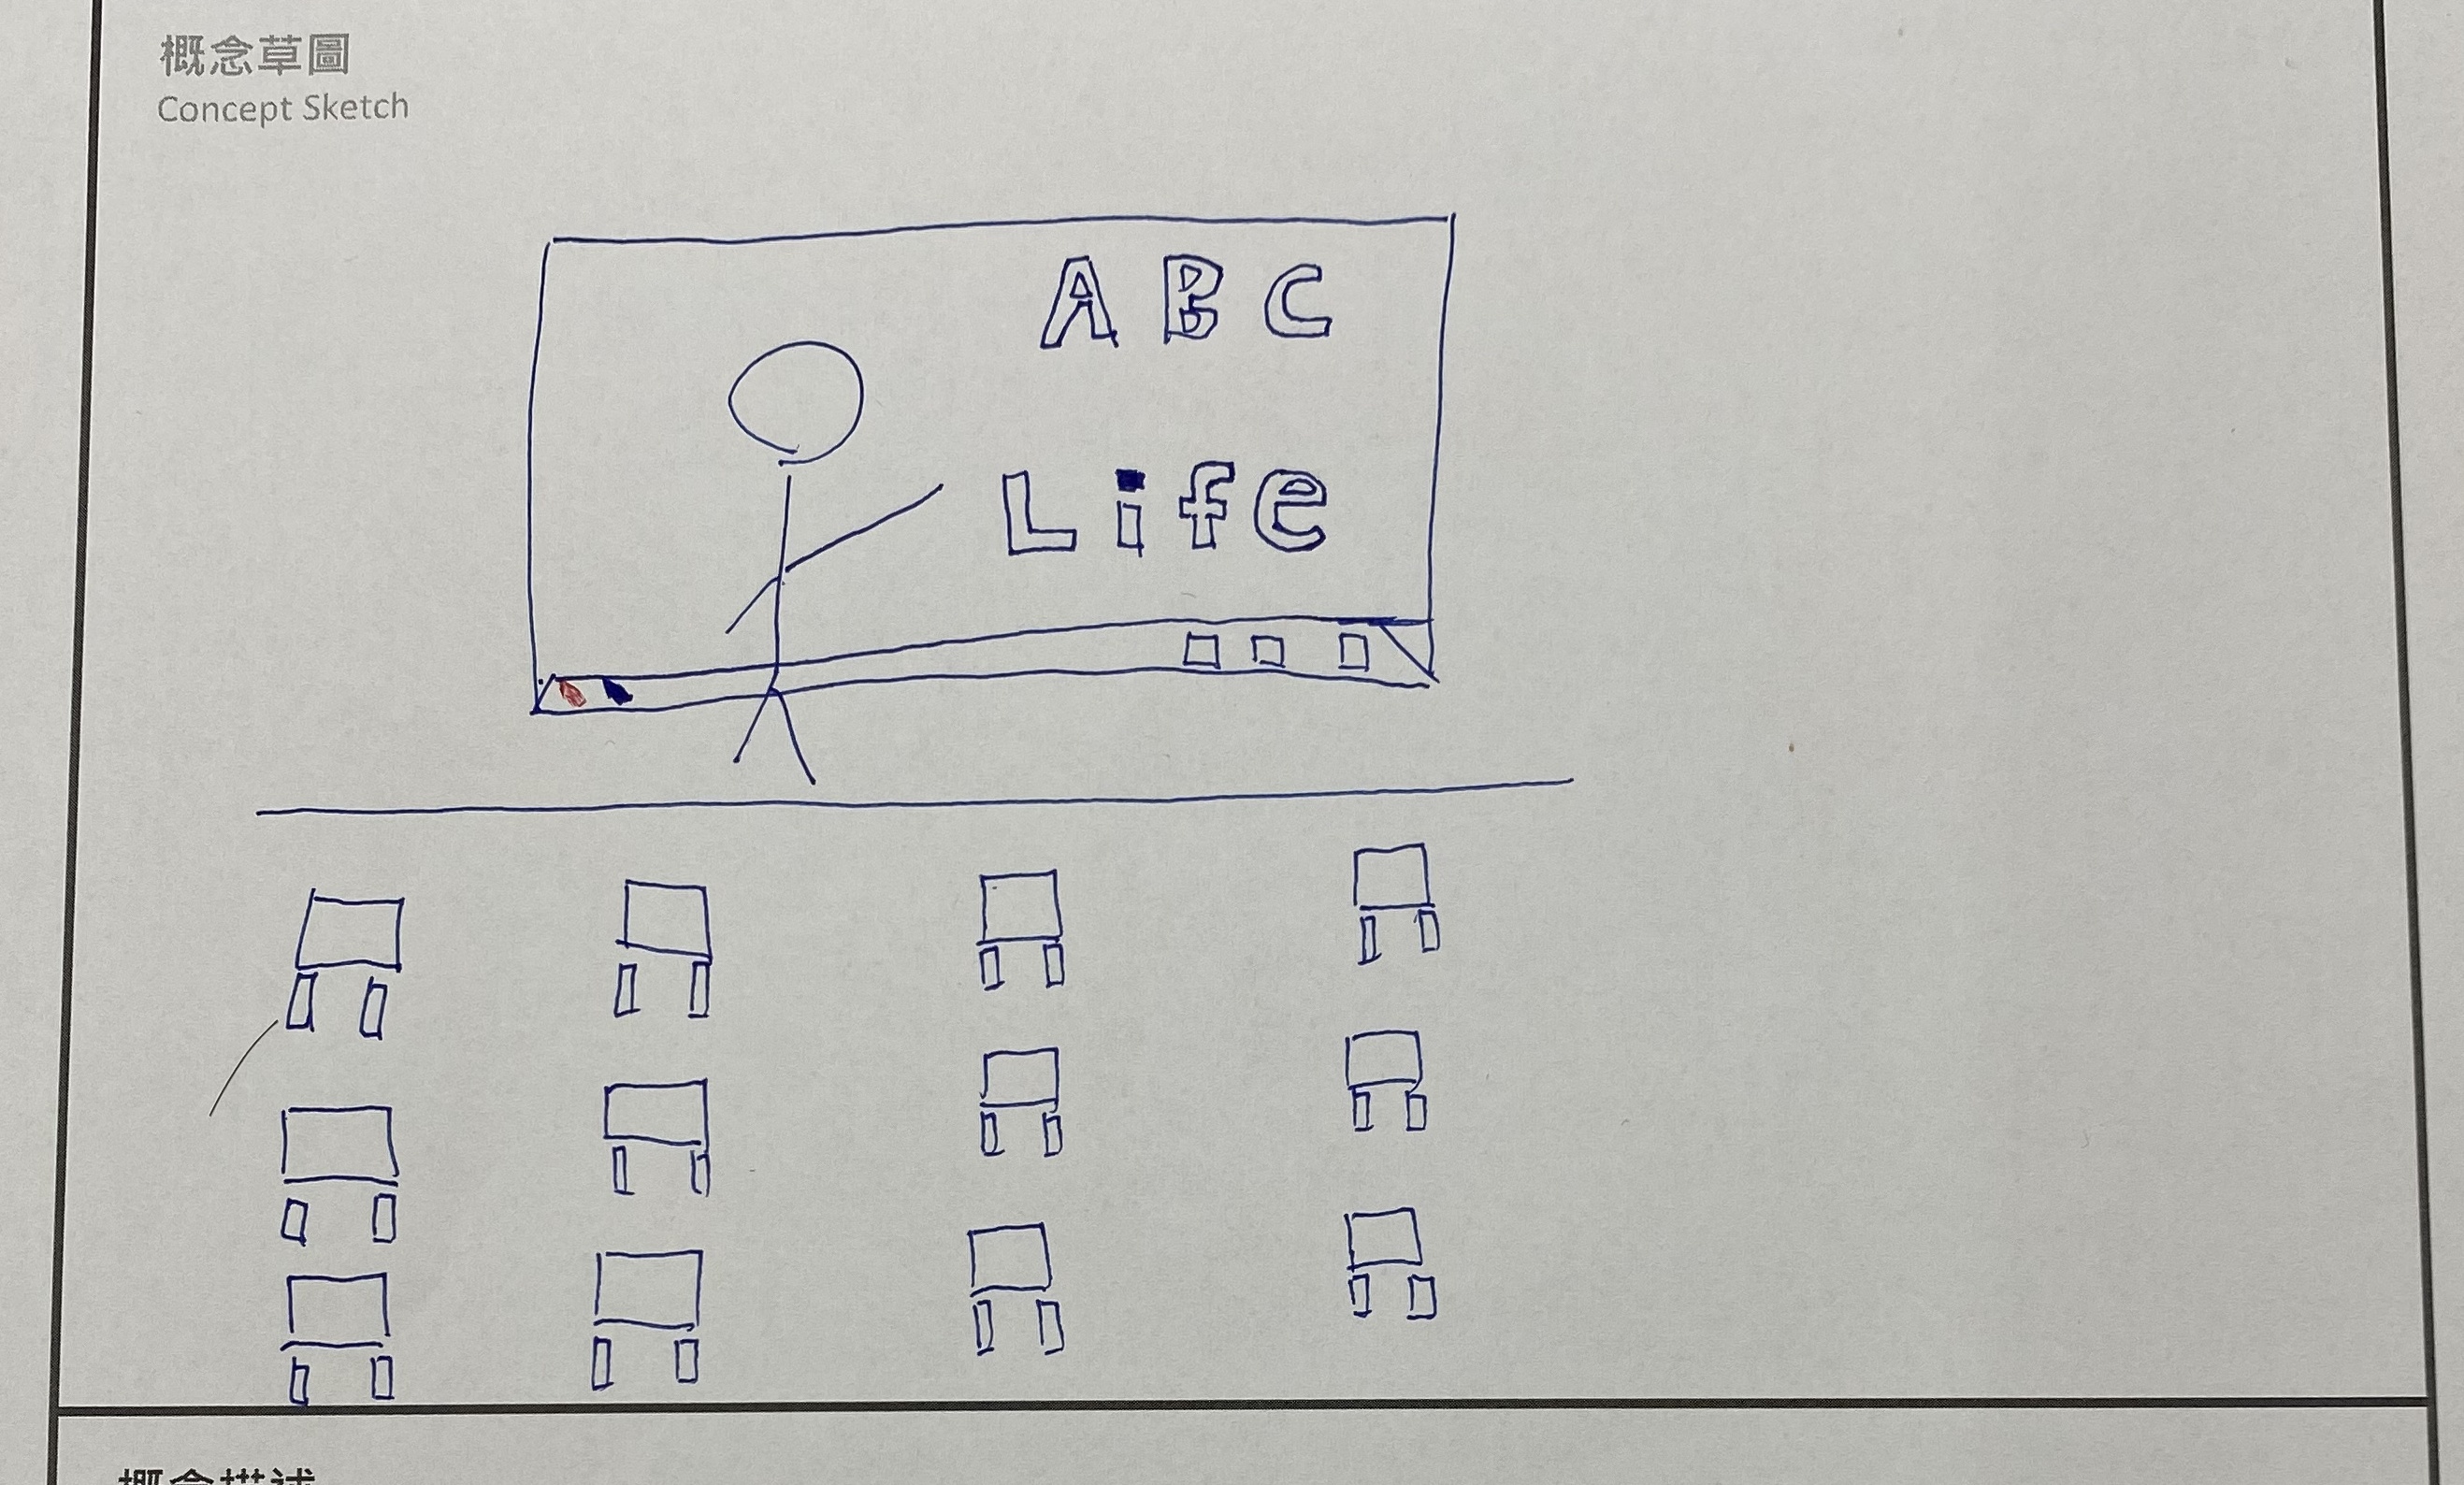 概念草圖
Concept Sketch
A B C
Life
概念描述